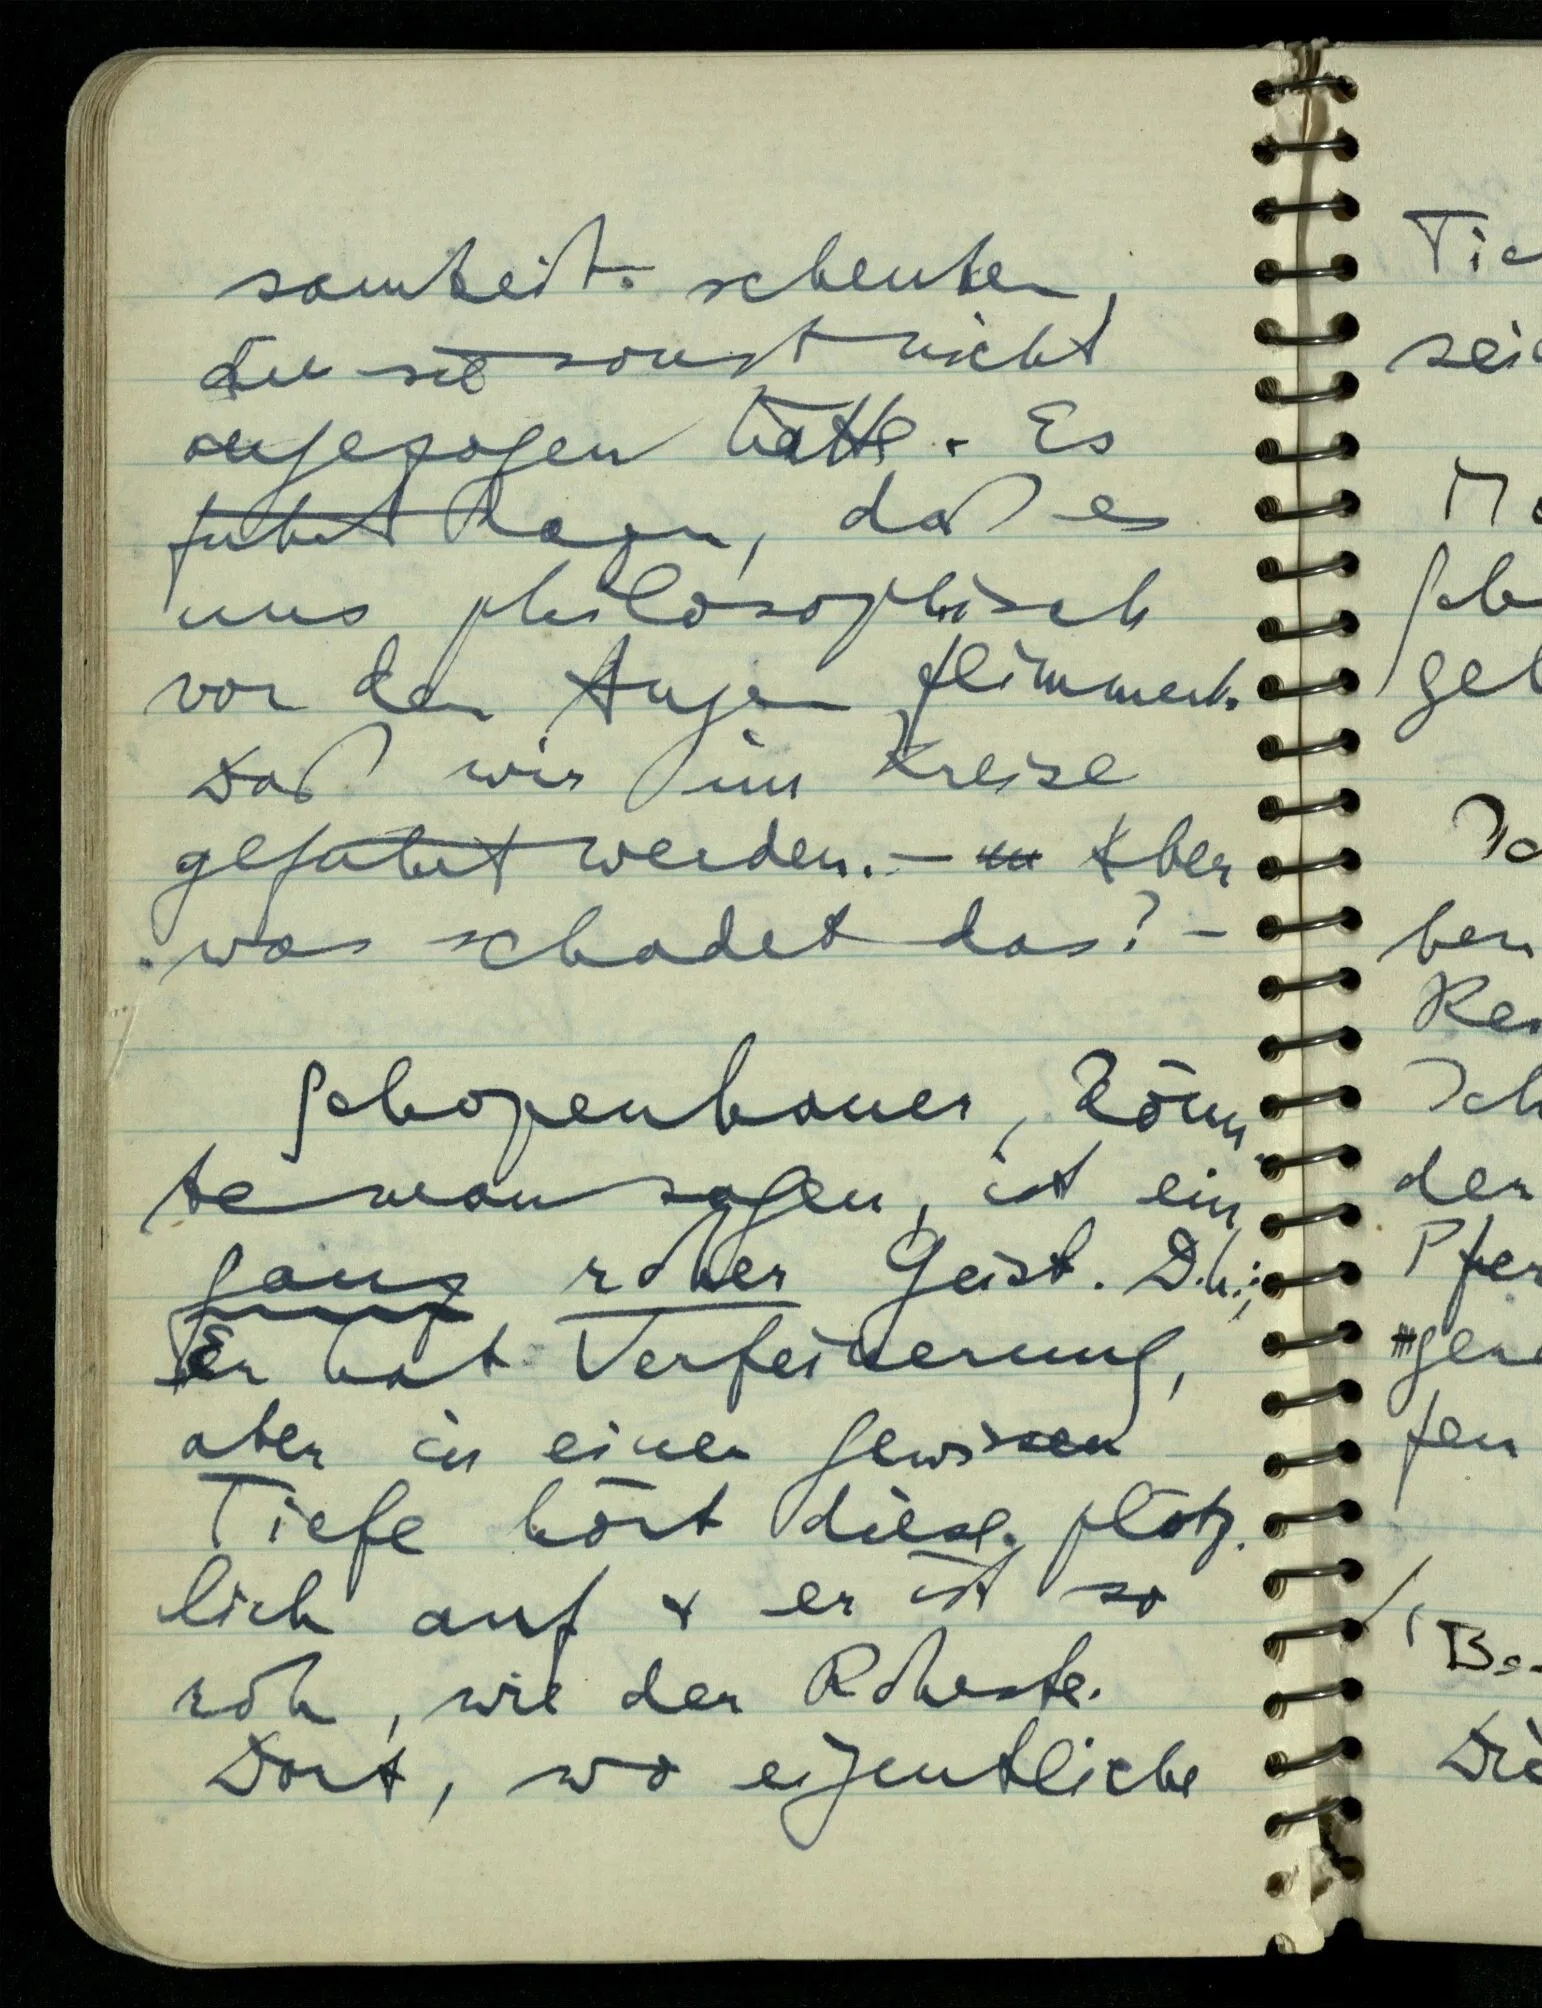 samkeit schenken,
die sie sonst nicht
angezogen hätte. Es
führt dazu, daß es
uns philosophisch
vor den Augen flimmert.
Daß wir im Kreise
geführt werden. – Aber
was schadet das? –
Schopenhauer, könn
te man sagen, ist ein
ganz roher Geist. D.h.:
Er hat Verfeinerung,
aber in einer gewissen
Tiefe hört diese plötz-
lich auf & er ist so
roh, wie der Roheste.
Dort, wo eigentliche
Tie
sei
gel
ben
Ich
der
Pfer
fen
Die